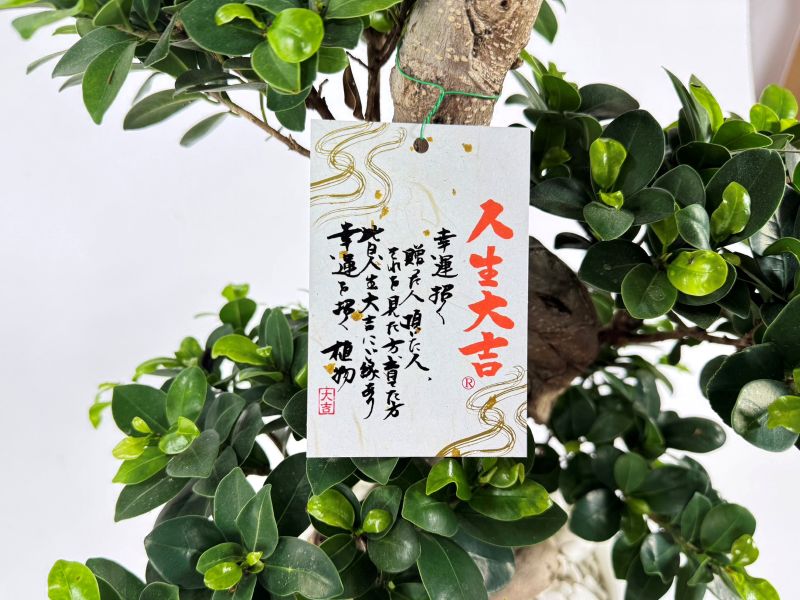 人生大吉®
幸運招く
贈った人 頂いた人、
それを見た方、育てた方
皆人生大吉にご縁あり
幸運を招く 植物
大吉